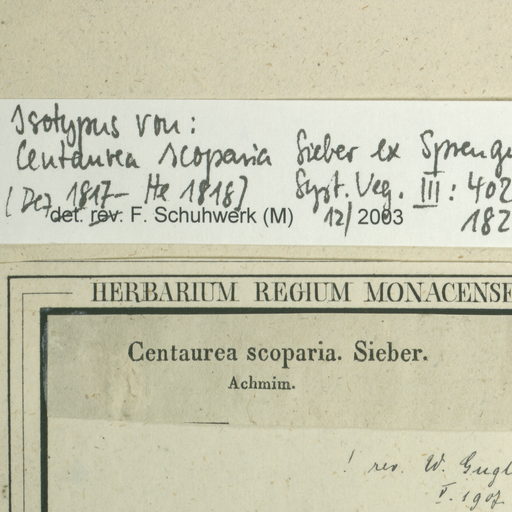 Isotypus von:
Centaurea scoparia Sieber ex Spreng
(Dez 1817 - 1818) Syst. Veg. III: 402
det. rev. F. Schuhwerk (M) 12/2003 182
HERBARIUM REGIUM MONACENSE
Centaurea scoparia. Sieber.
Achmim.
! rev. W. Gugl
V. 1907